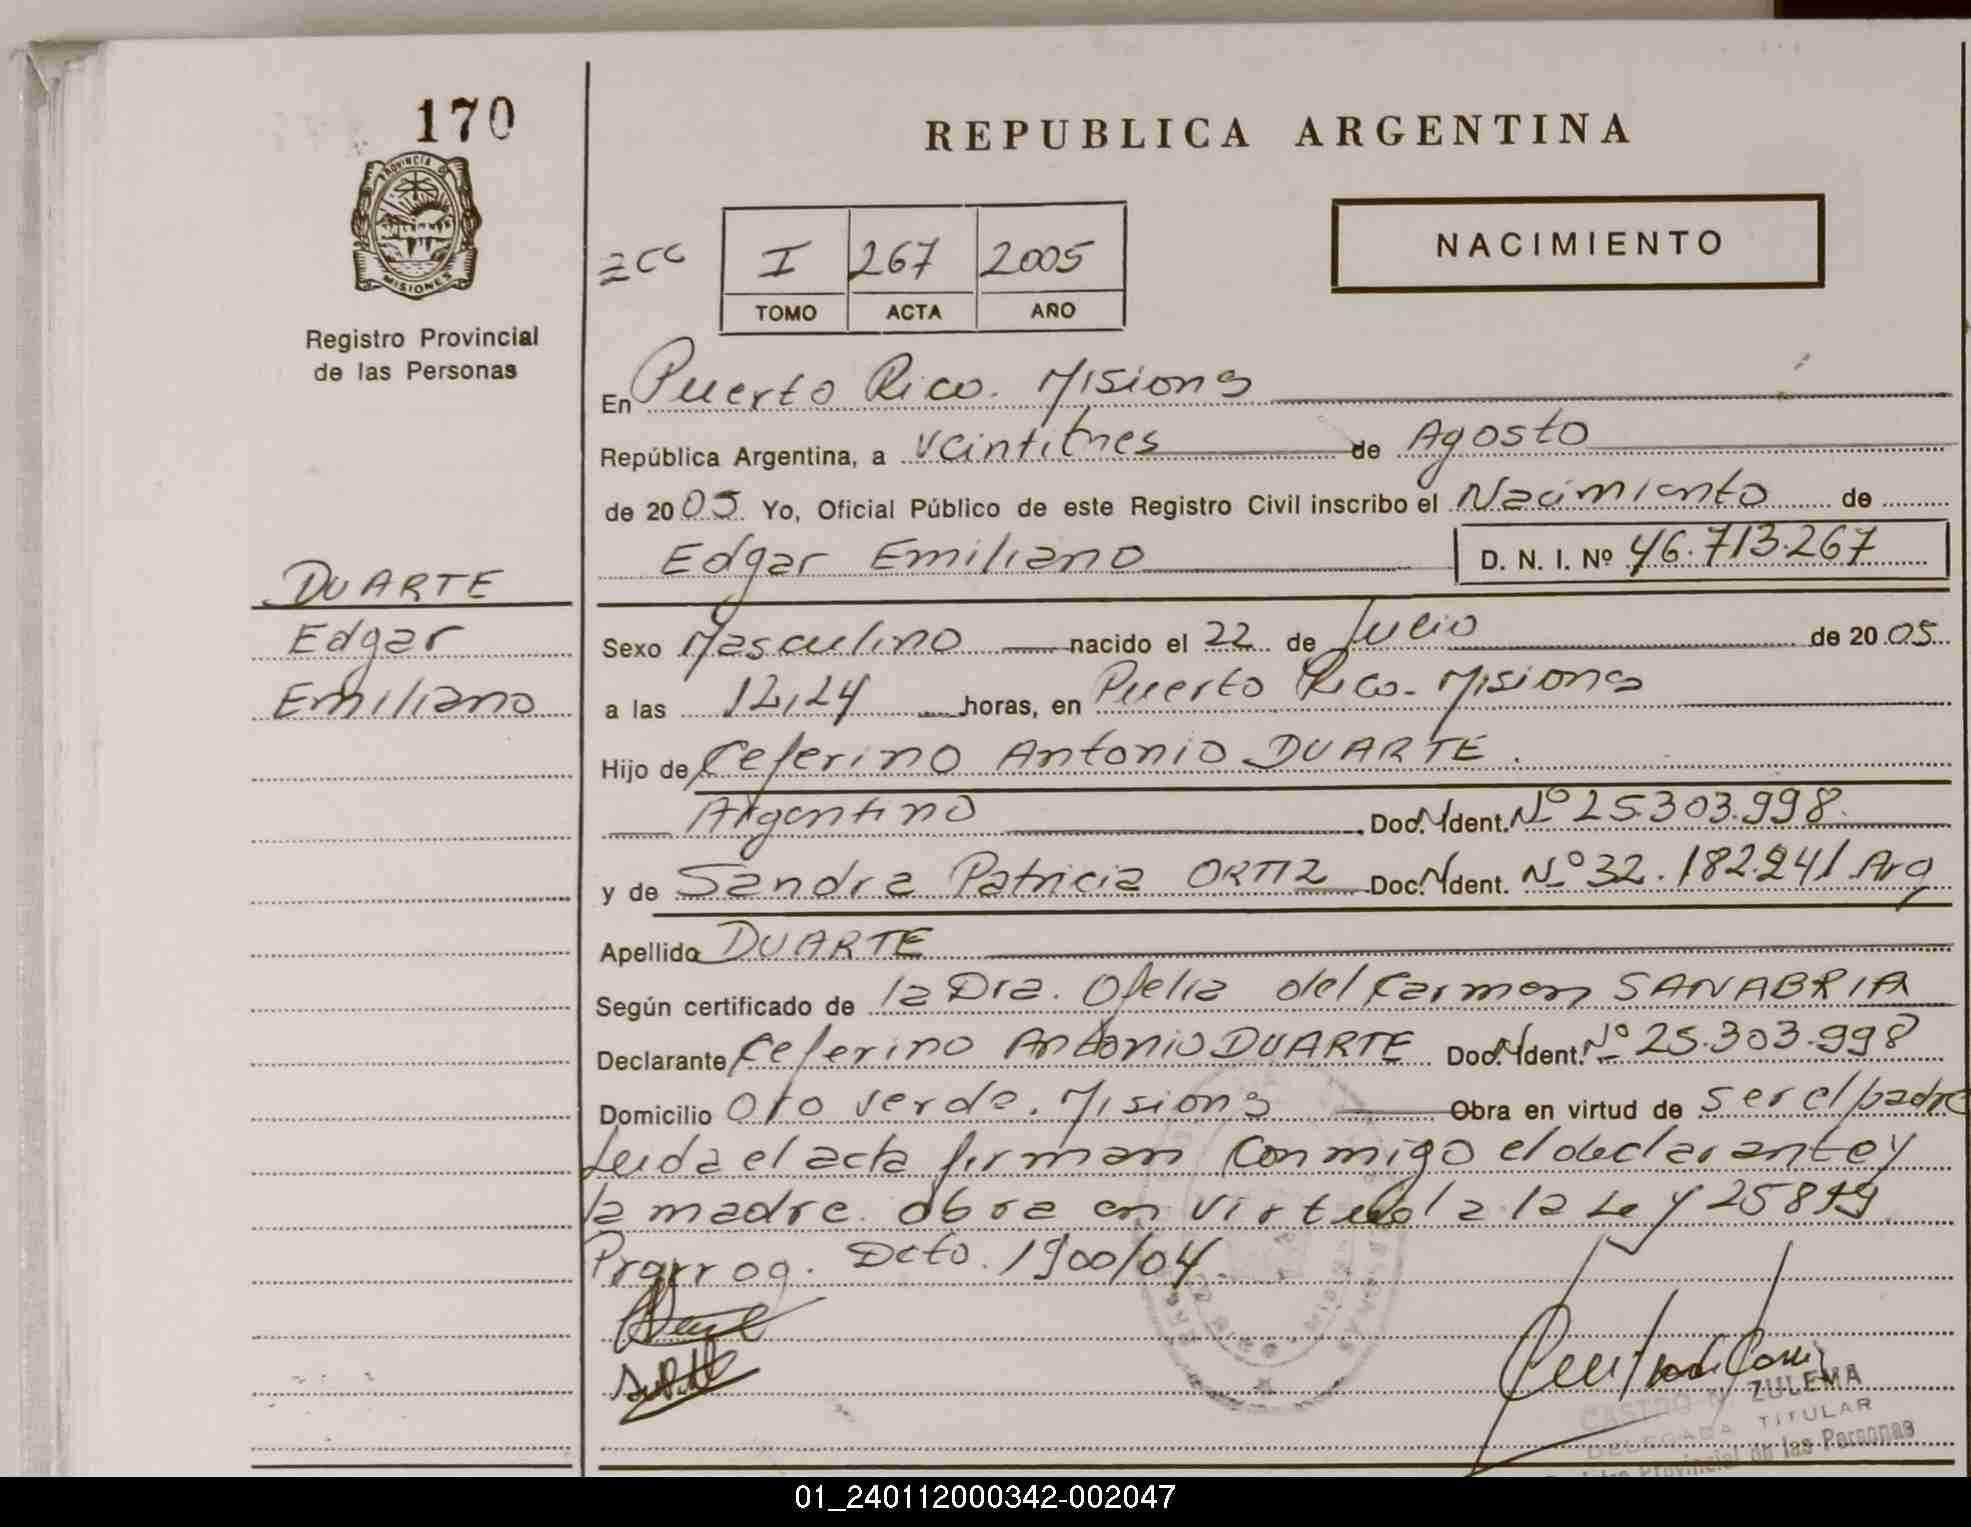 170
PROVINCIA DE
MISIONES
Registro Provincial
de las Personas
REPUBLICA ARGENTINA
NACIMIENTO
I 267 2005
TOMO ACTA AÑO
En Puerto Rico. Misiones
República Argentina, a veintitres de Agosto
de 2005 Yo, Oficial Público de este Registro Civil inscribo el Nacimiento de
Edgar Emiliano D. N. I. Nº 46.713.267
DUARTE
Edgar
Emiliano
Sexo Masculino nacido el 22 de Julio de 2005
a las 12,24 horas, en Puerto Rico. Misiones
Hijo de Ceferino Antonio DUARTE.
Argentino Doc. Ident. Nº 25.303.998.
y de Sandra Patricia ORTIZ Doc. Ident. Nº 32.182.241 Arg
Apellido DUARTE
Según certificado de la Dra. Ofelia del Carmen SANABRIA
Declarante Ceferino Antonio DUARTE Doc. Ident. Nº 25.303.998
Domicilio Oro Verde. Misiones Obra en virtud de ser el padre
Leida el acta firman conmigo el declarante y
la madre. obra en virtud a la Ley
Prorrog. Dcto. 1900/04
CASTRO N. ZULEMA
DELEGADA TITULAR
Registro Provincial de las Personas
01_240112000342-002047